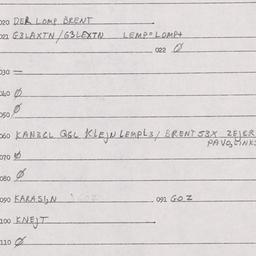 020 DER LOMP BRENT
021 G3LAXTN/G3LEXTN LEMP° LOMP+
022 Ø
030 —
040 Ø
050 Ø
060 KAN3CL QGL KLEJN LEMPL3/BRENT J3X ZEJER
070 Ø
080 Ø
090 KARASIJN . 091 GOZ
100 KNEJT
110 Ø